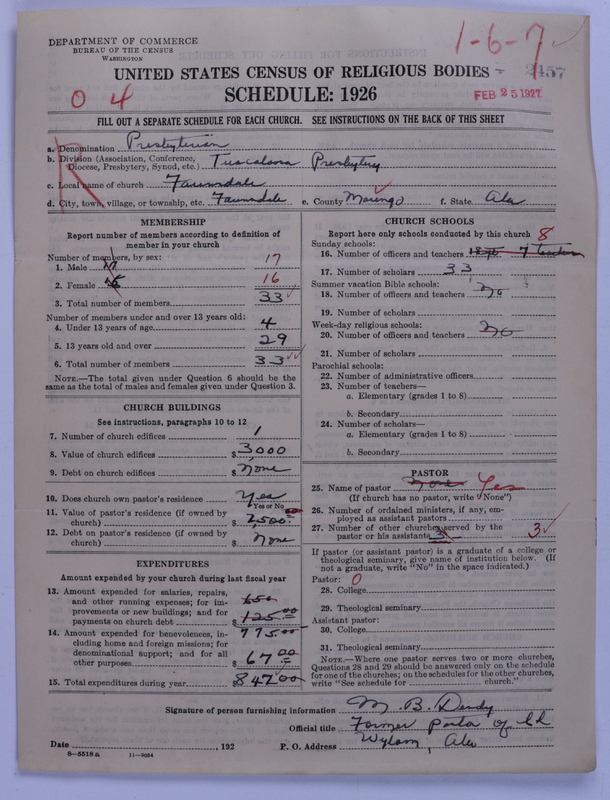 DEPARTMENT OF COMMERCE
BUREAU OF THE CENSUS
WASHINGTON
1-6-7
UNITED STATES CENSUS OF RELIGIOUS BODIES
2457
SCHEDULE: 1926
0 4
FEB 25 1927
FILL OUT A SEPARATE SCHEDULE FOR EACH CHURCH. SEE INSTRUCTIONS ON THE BACK OF THIS SHEET
R
a. Denomination Presbyterian
b. Division (Association, Conference, Diocese, Presbytery, Synod, etc.) Tuscaloosa Presbytery
c. Local name of church Faunsdale
d. City, town, village, or township, etc. Faunsdale e. County Marengo f. State Ala
MEMBERSHIP
Report number of members according to definition of member in your church
Number of members, by sex:
1. Male 17 17
2. Female 16
3. Total number of members 33
Number of members under and over 13 years old:
4. Under 13 years of age 4
5. 13 years old and over 29
6. Total number of members 33
NOTE.—The total given under Question 6 should be the
same as the total of males and females given under Question 3.
CHURCH BUILDINGS
See instructions, paragraphs 10 to 12
7. Number of church edifices 1
8. Value of church edifices $3000
9. Debt on church edifices $None
10. Does church own pastor's residence Yes
Yes or No
11. Value of pastor's residence (if owned by
church) $2,500.00
12. Debt on pastor's residence (if owned by
church) $None
EXPENDITURES
Amount expended by your church during last fiscal year
13. Amount expended for salaries, repairs,
and other running expenses; for im-
provements or new buildings; and for
payments on church debt 650 $125.00
14. Amount expended for benevolences, in- 775.00
cluding home and foreign missions; for
denominational support; and for all
other purposes $67.00
15. Total expenditures during year $842.00
CHURCH SCHOOLS
Report here only schools conducted by this church 8
Sunday schools:
16. Number of officers and teachers 7 teachers
17. Number of scholars 33
Summer vacation Bible schools:
18. Number of officers and teachers No
19. Number of scholars
Week-day religious schools:
20. Number of officers and teachers No
21. Number of scholars
Parochial schools:
22. Number of administrative officers
23. Number of teachers—
a. Elementary (grades 1 to 8)
b. Secondary
24. Number of scholars—
a. Elementary (grades 1 to 8)
b. Secondary
PASTOR
25. Name of pastor None Yes
(If church has no pastor, write "None")
26. Number of ordained ministers, if any, em-
ployed as assistant pastors
27. Number of other churches served by the
pastor or his assistants 3 3
If pastor (or assistant pastor) is a graduate of a college or
theological seminary, give name of institution below. (If
not a graduate, write "No" in the space indicated.)
Pastor: 0
28. College
29. Theological seminary
Assistant pastor:
30. College
31. Theological seminary
NOTE.—Where one pastor serves two or more churches,
Questions 28 and 29 should be answered only on the schedule
for one of the churches; on the schedules for the other churches,
write "See schedule for church."
Signature of person furnishing information M. B. Dendy
Official title Former pastor of Ch
Date , 192 P. O. Address Wylam, Ala
8—5518a 11—9034